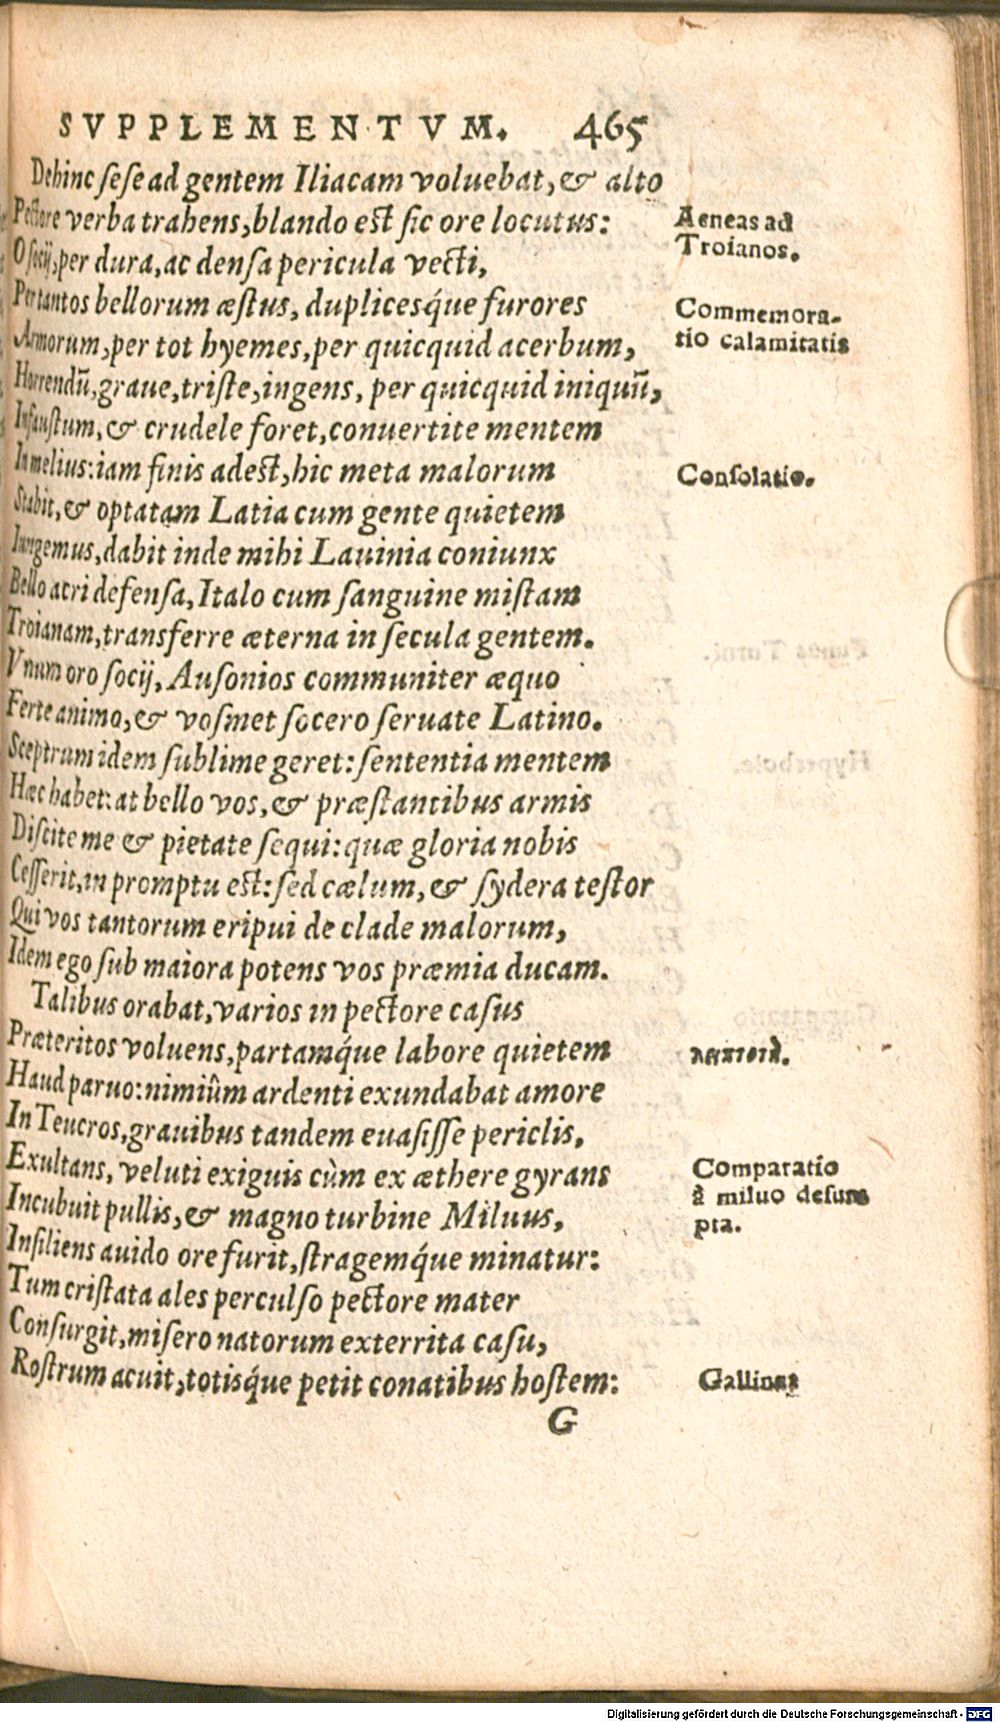 SVPPLEMENTVM. 465
Dehinc sese ad gentem Iliacam voluebat, & alto
Pectore verba trahens, blando est sic ore locutus:
Aeneas ad
Troianos.
O socij, per dura, ac densa pericula vecti,
Per tantos bellorum æstus, duplicesq́ue furores
Commemora-
tio calamitatis
Armorum, per tot hyemes, per quicquid acerbum,
Horrendū, graue, triste, ingens, per quicquid iniquū,
Infaustum, & crudele foret, conuertite mentem
In melius: iam finis adest, hic meta malorum
Consolatio.
Stabit, & optatam Latia cum gente quietem
Iungemus, dabit inde mihi Lauinia coniunx
Bello acri defensa, Italo cum sanguine mistam
Troianam, transferre æterna in secula gentem.
Vnum oro socij, Ausonios communiter æquo
Ferte animo, & vosmet socero seruate Latino.
Sceptrum idem sublime geret: sententia mentem
Hæc habet: at bello vos, & præstantibus armis
Discite me & pietate sequi: quæ gloria nobis
Cesserit, in promptu est: sed cælum, & sydera testor
Qui vos tantorum eripui de clade malorum,
Idem ego sub maiora potens vos præmia ducam.
Talibus orabat, varios in pectore casus
Præteritos voluens, partamq́ue labore quietem
Haud paruo: nimiûm ardenti exundabat amore
In Teucros, grauibus tandem euasisse periclis.
Exultans, veluti exiguis cùm ex æthere gyrans
Comparatio
à miluo desum
pta.
Incubuit pullis, & magno turbine Miluus,
Insiliens auido ore furit, stragemq́ue minatur:
Tum cristata ales perculso pectore mater
Consurgit, misero natorum exterrita casu,
Rostrum acuit, totisq́ue petit conatibus hostem:
Gallinæ
G
Digitalisierung gefördert durch die Deutsche Forschungsgemeinschaft - DFG